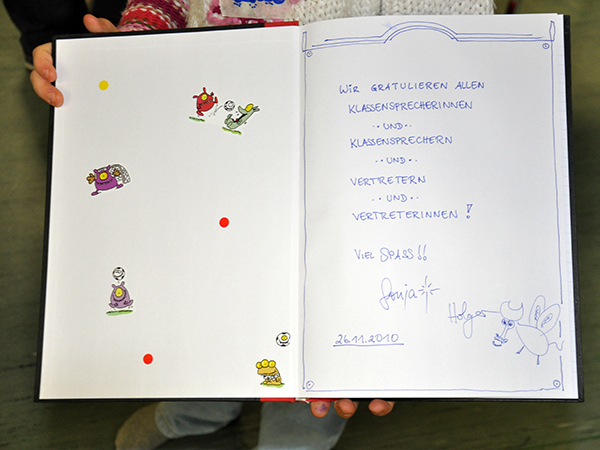 WIR GRATULIEREN ALLEN
KLASSENSPRECHERINNEN
-- UND --
KLASSENSPRECHERN
-- UND --
VERTRETERN
-- UND --
VERTRETERINNEN !
VIEL SPASS !!
Sonja
Holger
26.11.2010